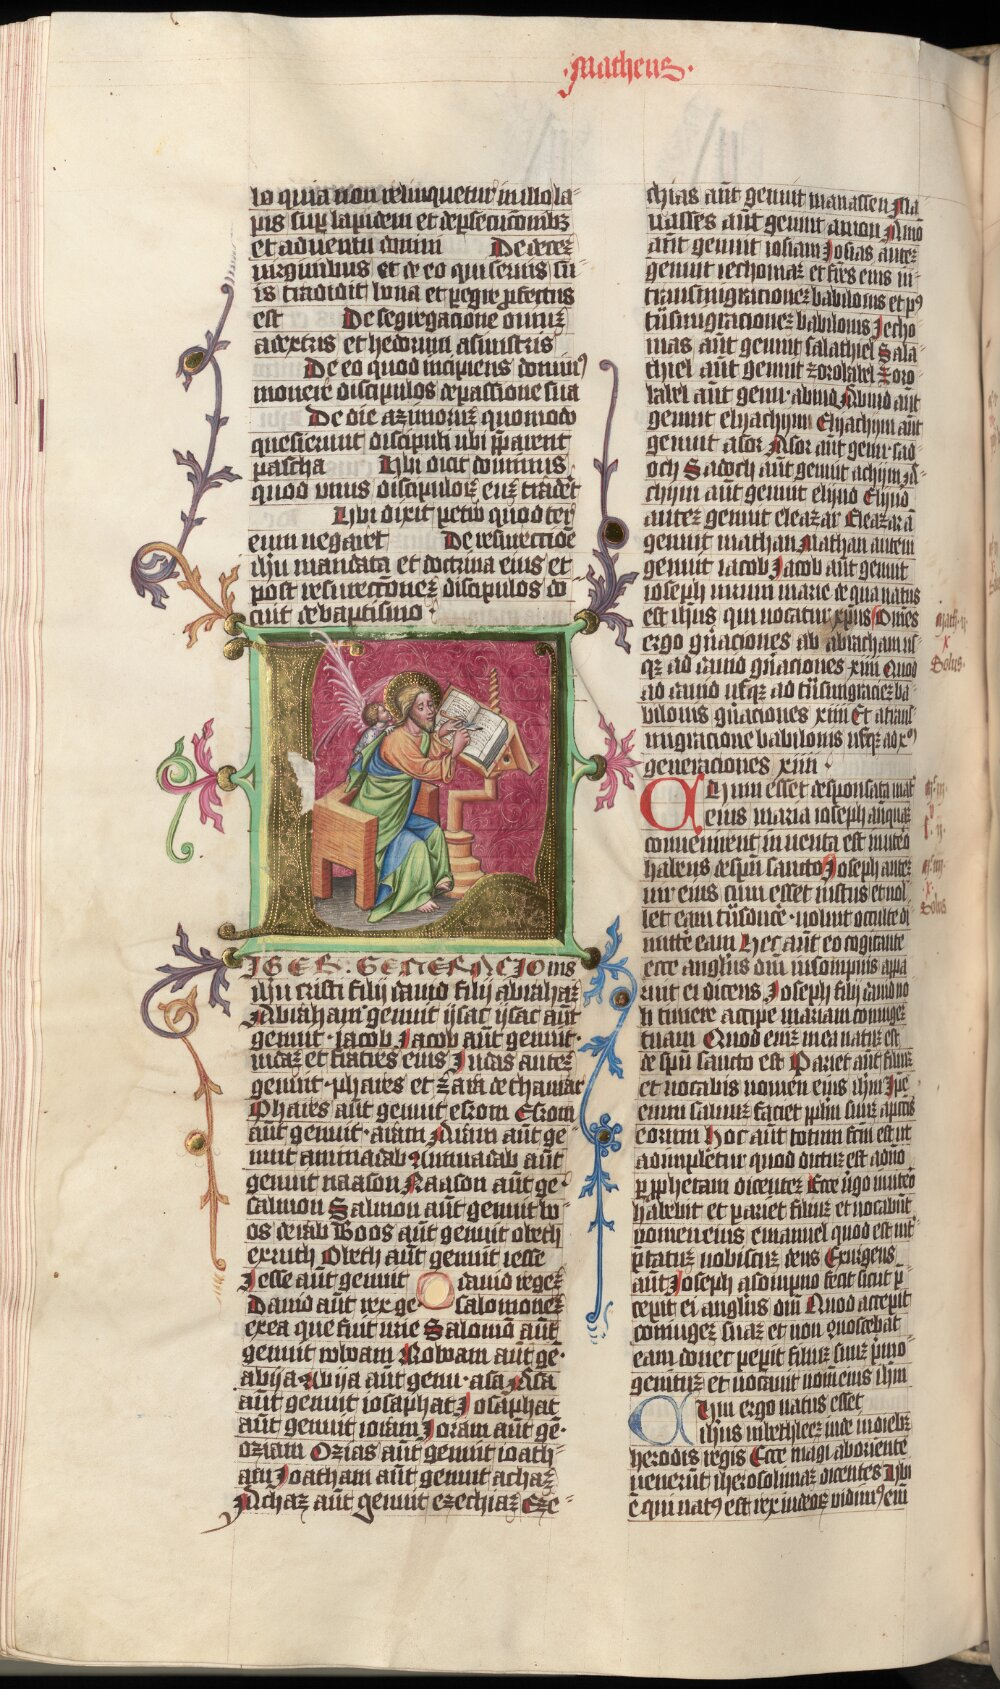 .Matheus.
lo quia non relinquetur in illo la-
pis sup lapidem et de psecucionibz
et adventu domini De decez
virginibus et de eo qui servis su-
is tradidit bona et pegre pfectus
est De segregacione oviuz
a dextris et hedorum a sinistris
De eo quod incipiens dominus
monere discipulos de passione sua
De die azimoruz quomodo
quesierunt discipuli ubi pparent
pascha Ubi dicit dominus
quod unus discipuloz euz tradet
Ubi dixit petro quod ter
eum negaret De resurrectioe
ihu mandata et doctrina eius et
post resurrectionez discipulos do
cuit de baptismo
LIBER GENERACIOnis
ihu cristi filij david filij abrahaz
Abraham genuit ysac ysac aut
genuit iacob Jacob aut genuit
iudaz et fratres eius Judas autez
genuit phares et zara de thamar
Phares aut genuit esrom Esrom
aut genuit aram Aram aut ge
nuit aminadab Aminadab aut
genuit naason Naason aut ge-
salmon Salmon aut genuit bo-
os de rab Boos aut genuit obeth
ex ruth Obeth aut genuit iesse
Jesse aut genuit david regez
David aut rex ge salomonez
ex ea que fuit urie Salomo aut
genuit roboam Roboam aut ge-
abija Abija aut genu asa Asa
aut genuit iosaphat Josaphat
aut genuit ioram Joram aut ge-
oziam Ozias aut genuit ioath-
am Joatham aut genuit achaz
Achaz aut genuit ezechiaz Eze-
chias aut genuit manassen Ma
nasses aut genuit amon Amo
aut genuit iosiam Josias autez
genuit iechoniaz et fres eius in
transmigracionez babilonis et p9
tnsmigracionez babilonis Jecho
nias aut genuit salathiel Sala
thiel aut genuit zorobabel Zoro
babel aut genu abiud Abiud aut
genuit elyachym Elyachym aut
genuit asor Asor aut genu sad
och Sadoch aut genuit achym A-
chym aut genuit elyud Elyud
autez genuit eleazar Eleazar a
genuit mathan Mathan autem
genuit iacob Jacob aut genuit
ioseph virum marie de qua natus
est ihus qui vocatur xpus Omes
ergo gnaciones ab abracham us
qz ad david gnaciones xiiii Quod
ad david usqz ad tnsmigraciez ba-
bilonis gnaciones xiiii Et a trans
migracione babilonis usqz ad x9
generaciones xiiii
Cum esset desponsata mat
eius maria ioseph anquaz
convenirent inventa est in utero
habens de spu sancto Joseph autez
vir eius cum esset iustus et nol
let eam tnsduce voluit occulte di
mitte eam Hec aut eo cogitante
ecce anglus dni in sompnis appa
ruit ei dicens Joseph fili david no
li timere accipe mariam coniugez
tuam Quod eniz in ea natuz est
de spu sancto est Pariet aut filiuz
et vocabis nomen eius ihm Ipe
enim salvuz faciet pplm suuz a pctis
eorum Hoc aut totum fcm est ut
adimpletur quod dictuz est a dno
p pphetam dicentez Ecce vgo in utero
habebit et pariet filiuz et vocabut
nomen eius emanuel quod est int
ptatuz nobiscuz deus Exurgens
aut Joseph a sompno fecit sicut p-
cepit ei anglus dni Quod accepit
coniugez suaz et non gnoscebat
eam donec pepit filiuz suuz pmo
genituz et vocavit nom eius ihm
Cum ergo natus esset
ihus in bethleez iude in diebz
herodis regis Ecce magi ab oriente
venerut iherosolimaz dicentes Ubi
e qui nat9 est rex iudeoz vidim9 eni